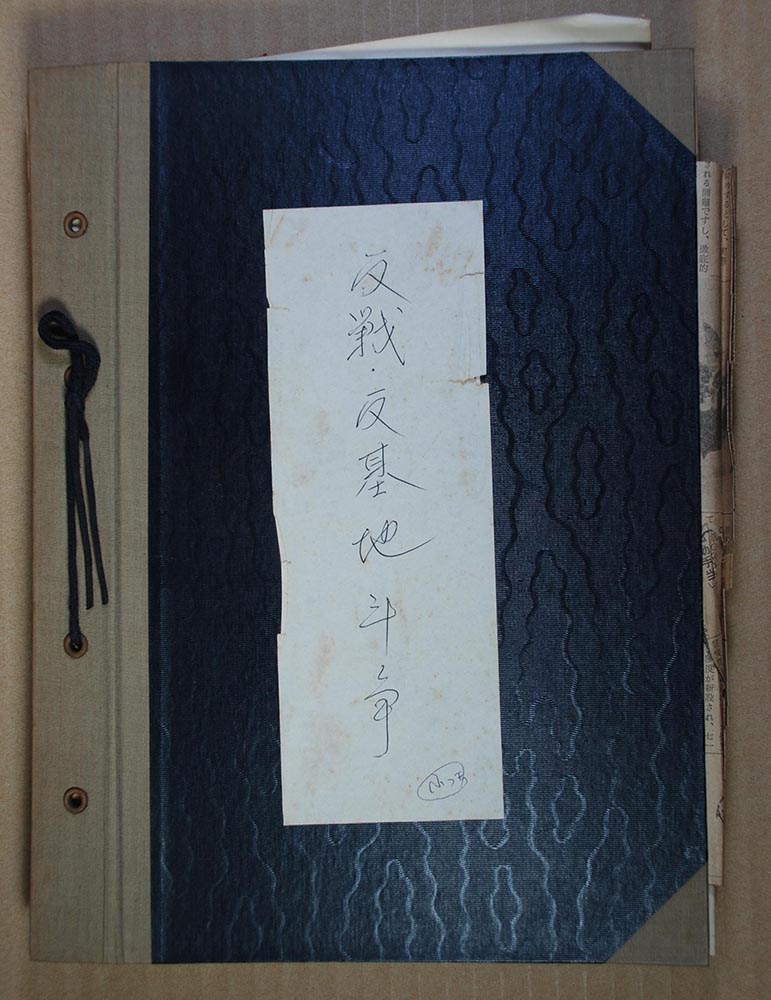 反戦・反基地斗争
れる問題ですし、徹底的
が新設され、七